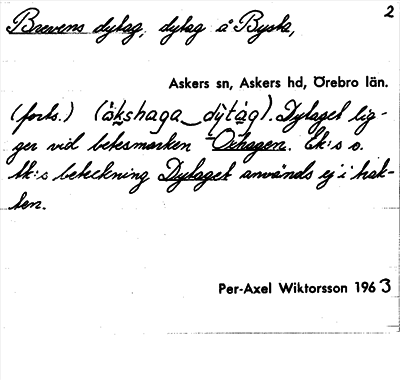 2
Brevens dytag, dytag å Bysta,
Askers sn, Askers hd, Örebro län.
(forts.) (åkshaga_dýtàg). Dytaget lig-
ger vid betesmarken Oxhagen. Ek:s o.
tk:s beteckning Dytaget används ej i trak-
ten.
Per-Axel Wiktorsson 1963